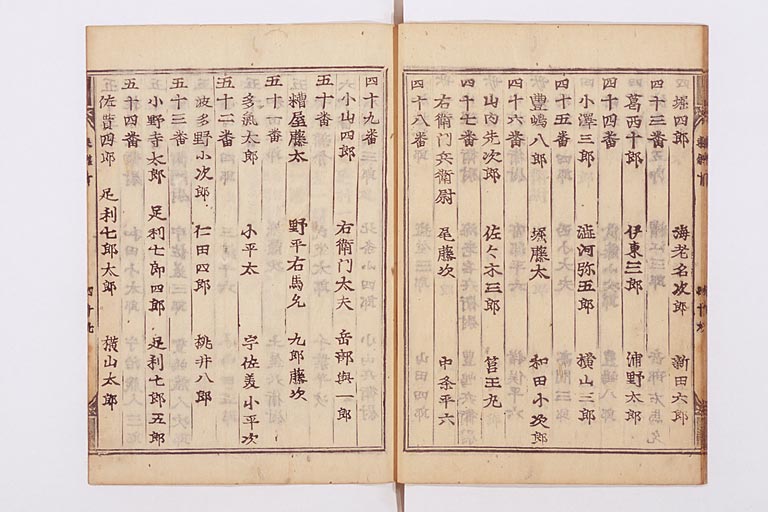 堀四郎 海老名次郎 新田六郎
四十三番
葛西十郎 伊東三郎 浦野太郎
四十四番
小澤三郎 澁河弥五郎 横山三郎
四十五番
豊嶋八郎 堀藤太 和田小次郎
四十六番
山内先次郎 佐々木三郎 筥王丸
四十七番
右衛門兵衛尉 尾藤次 中条平六
四十八番
四十九番
小山四郎 右衛門太夫 岳部與一郎
五十番
糟屋藤太 野平右馬允 九郎藤次
五十一番
多氣太郎 小平太 宇佐美小平次
五十二番
波多野小次郎 仁田四郎 桃井八郎
五十三番
小野寺太郎 足利七郎四郎 足利七郎五郎
五十四番
佐貫四郎 足利七郎太郎 横山太郎